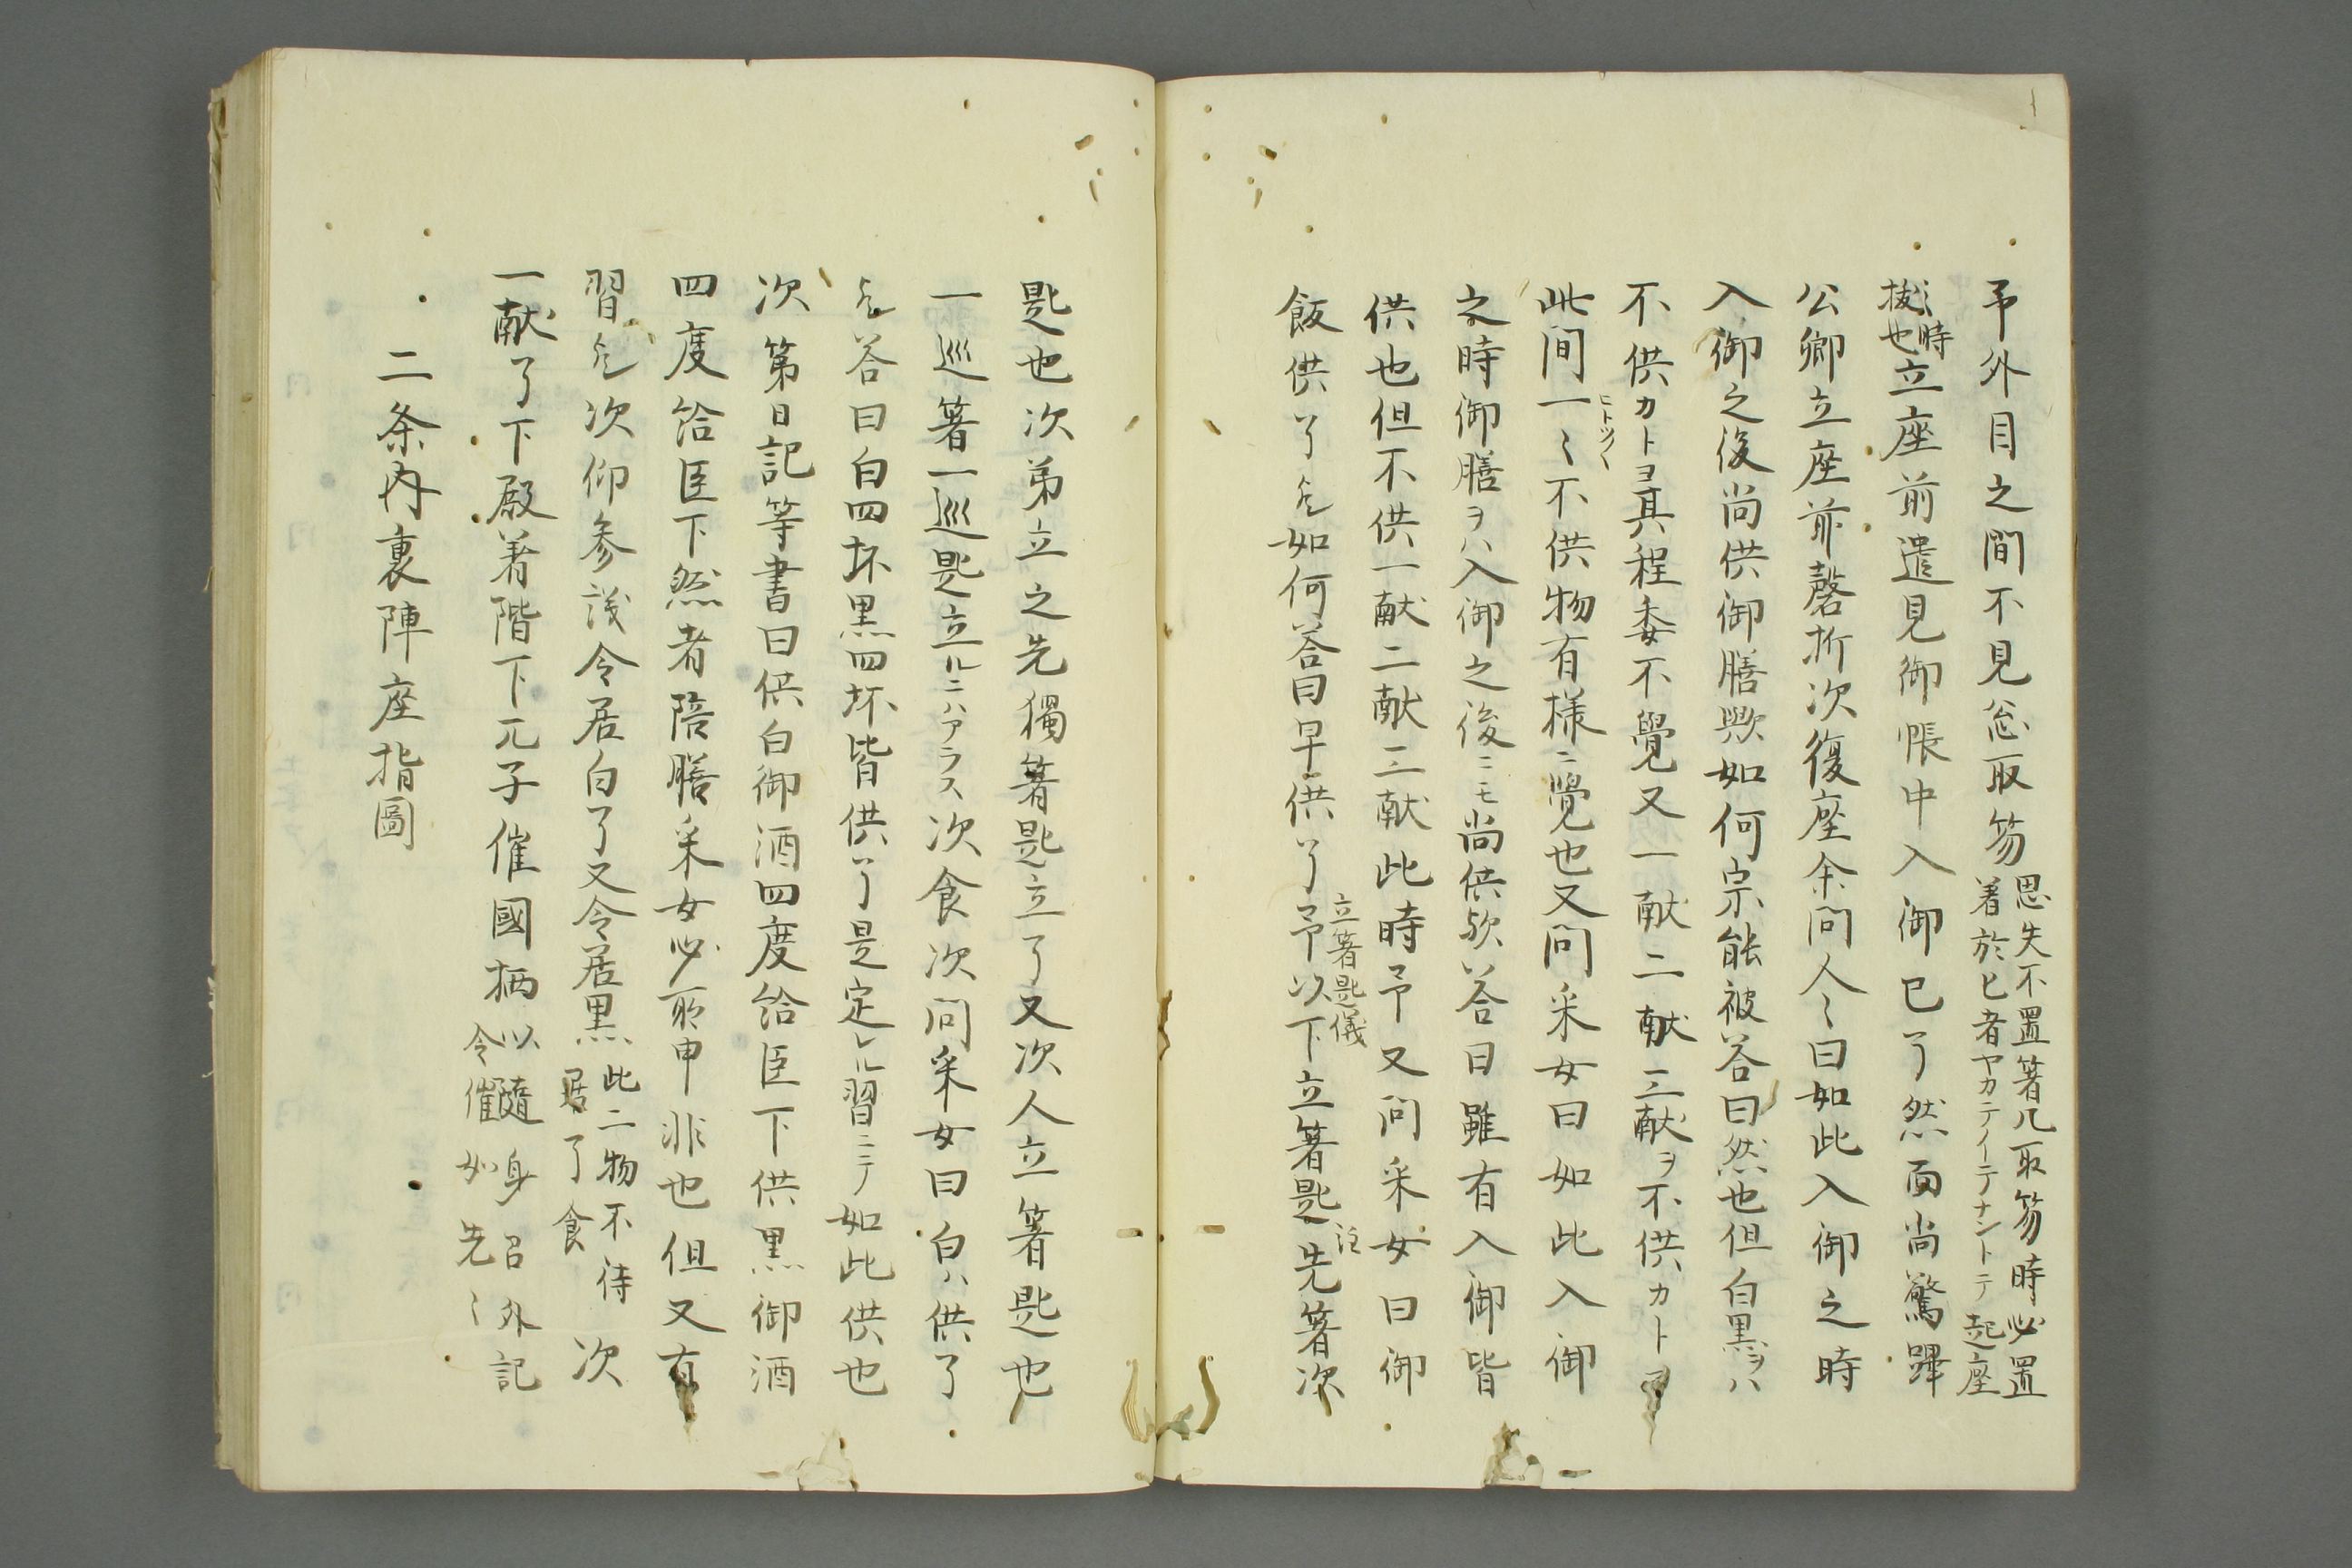 予外目之間不見忩取笏思失不置箸几取笏時必置
著於匕者ヤカテイテナントテ起座
〻時
抜也立座前遣見御帳中入御已了然而尚驚蹕
公卿立座前磬折次復座余問人〻曰如此入御之時
入御之後尚供御膳歟如何宗能被答曰然也但白黒ヲハ
不供カトヨ其程委不覺又一献二献三献ヲ不供カトヨ
此间一〻不供物有様ニ覺也又问采女曰如此入御
ヒトツ〱
之時御膳ヲハ入御之後ニモ尚供欤答曰雖有入御皆
供也但不供一献二献三献此時予又问采女曰御
飯供了乞如何答曰早供了予以下立箸匙先箸次
立箸匙儀
注
匙也次第立之先獨箸匙立了又次人立箸匙也
一巡箸一巡匙立ルニハアラス次食次问采女曰白ハ供了
乞答曰白四坏黒四坏皆供了是定レル習ニテ如此供也
次第日記等書曰供白御酒四度給臣下供黒御酒
四度給臣下然者陪膳采女必所申非也但又有
習乞次仰参議令居白了又令居黒此二物不待
居了食
次
一献了下殿著階下兀子催國栖以隨身召外記
令催如先〻
二条内裏陣座指圖